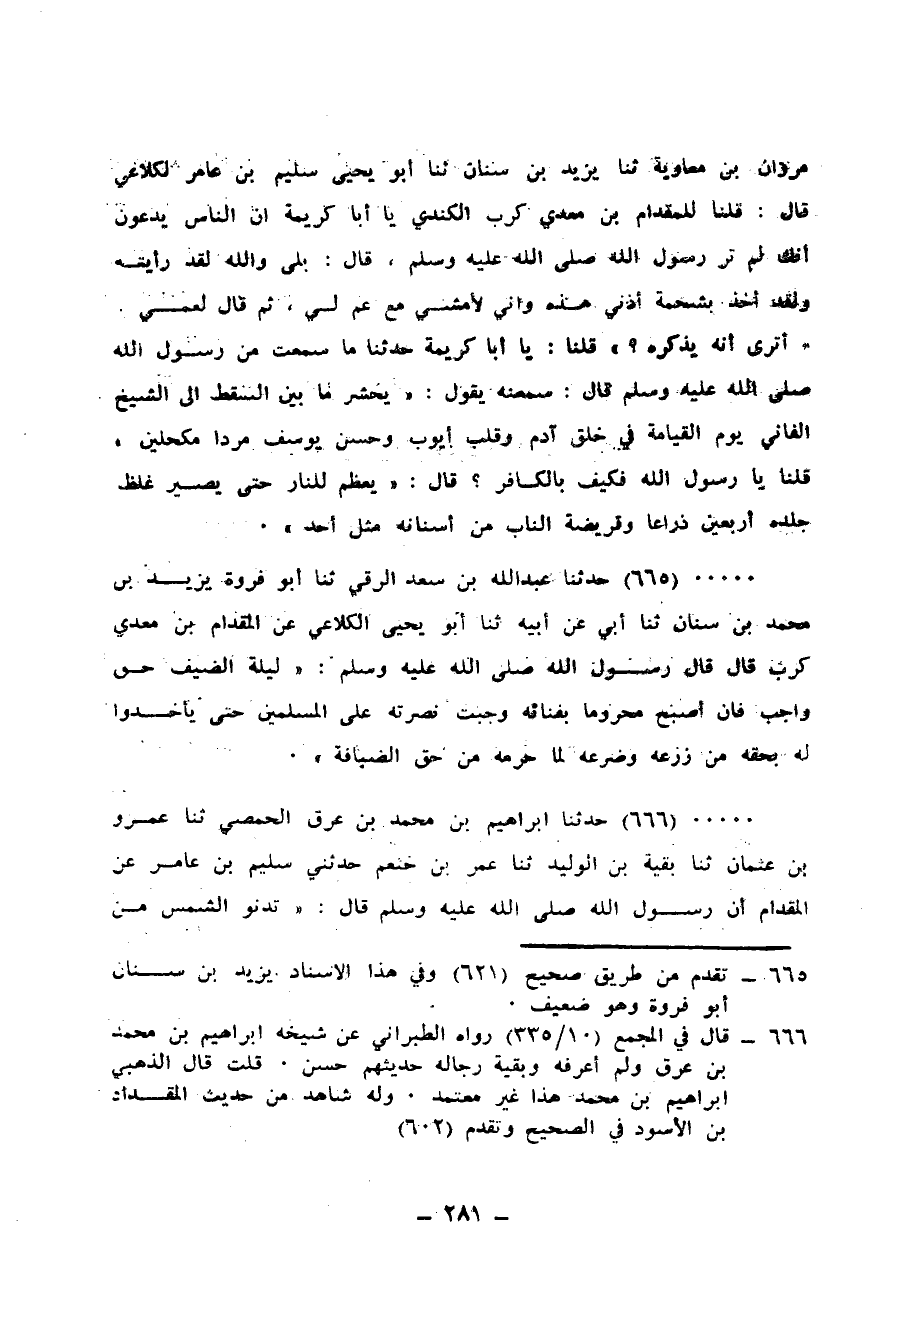 مروان بن معاوية ثنا يزيد بن سنان ثنا أبو يحيى سليم بن عامر الكلاعي
قال : قلنا للمقدام بن معدي كرب الكندي يا أبا كريمة ان الناس يدعون
أنك لم تر رسول الله صلى الله عليه وسلم ، قال : بلى والله لقد رأيتـه
ولقد أخذ بشحمة أذني هـذه واني لأمشـي مع عم لـي ، ثم قال لعمـي .
« أترى أنه يذكره ؟ » قلنا : يا أبا كريمة حدثنا ما سمعت من رسـول الله
صلى الله عليه وسلم قال : سمعته يقول : « يحشر ما بين السقط الى الشيخ
الفاني يوم القيامة في خلق آدم وقلب أيوب وحسن يوسف مردا مكحلين »
قلنا يا رسول الله فكيف بالكـافر ؟ قال : « يعظم للنار حتى يصـير غلظ
جلده أربعين ذراعا وقريضة الناب من أسنانه مثل أحد » ٠
٠٠٠٠٠ (٦٦٥) حدثنا عبدالله بن سعد الرقي ثنا أبو فروة يزيـد بن
محمد بن سنان ثنا أبي عن أبيه ثنا أبو يحيى الكلاعي عن المقدام بن معدي
كرب قال قال رسـول الله صلى الله عليه وسلم : « ليلة الضيف حـق
واجب فان أصبح محروما بفنائه وجبت نصرته على المسلمين حتى يأخـدوا
له بحقه من زرعه وضرعه لما حرمه من حق الضيافة » ٠
٠٠٠٠٠ (٦٦٦) حدثنا ابراهيم بن محمد بن عرق الحمصي ثنا عمـرو
بن عثمان ثنا بقية بن الوليد ثنا عمر بن خثعم حدثني سليم بن عامـر عن
المقدام أن رسـول الله صلى الله عليه وسلم قال : « تدنو الشمس مـن
٦٦٥ ـ تقدم من طريق صحيح (٦٢١) وفي هذا الاسناد يزيد بن سـنان
أبو فروة وهو ضعيف ٠
٦٦٦ ـ قال في المجمع (٣٣٥/١٠) رواه الطبراني عن شيخه ابراهيم بن محمد
بن عرق ولم أعرفه وبقية رجاله حديثهم حسن ٠ قلت قال الذهبي
ابراهيم بن محمد هذا غير معتمد ٠ وله شاهد من حديث المقـداد
بن الأسود في الصحيح وتقدم (٦٠٢)
ـ ٢٨١ ـ